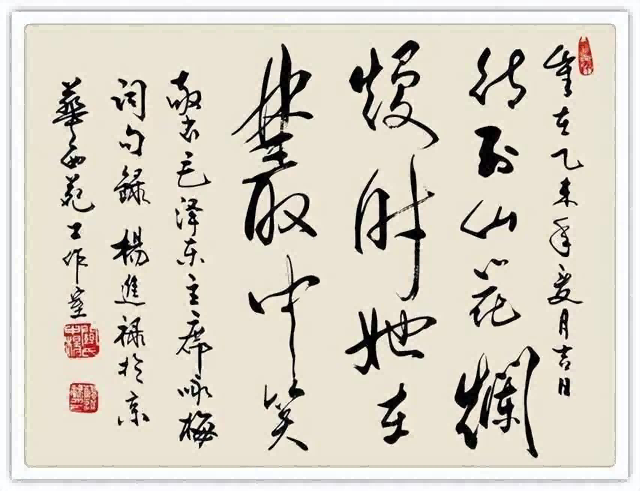 歲在乙未年夏月吉日
待到山花爛
熳时她在
叢中笑
敬书毛泽东主席咏梅
词句録楊進禄於京
華苑工作室